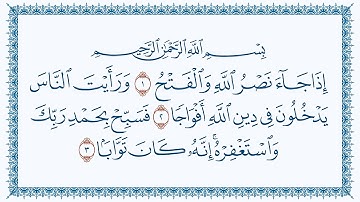 بِسْمِ اللَّهِ الرَّحْمَٰنِ الرَّحِيمِ
إِذَا جَآءَ نَصْرُ اللَّهِ وَالْفَتْحُ ١ وَرَأَيْتَ النَّاسَ
يَدْخُلُونَ فِي دِينِ اللَّهِ أَفْوَاجًا ٢ فَسَبِّحْ بِحَمْدِ رَبِّكَ
وَاسْتَغْفِرْهُ ۚ إِنَّهُ كَانَ تَوَّابًا ٣